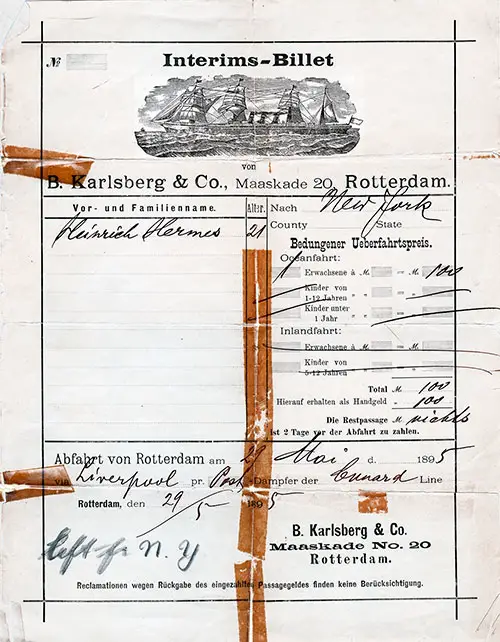 №
Interims-Billet
von
B. Karlsberg & Co., Maaskade 20, Rotterdam.
Vor- und Familienname.
Alter.
Heinrich Hermes 21
Nach New York
County State
Bedungener Ueberfahrtspreis.
Oceanfahrt:
1 Erwachsene à M. = M. 100
Kinder von
1-12 Jahren " " = "
Kinder unter
1 Jahr " " = "
Inlandfahrt:
Erwachsene à M. = M.
Kinder von
5-12 Jahren " " = "
Total M. 100
Hierauf erhalten als Handgeld " 100
Die Restpassage M. nichts
ist 2 Tage vor der Abfahrt zu zahlen.
Abfahrt von Rotterdam am 29 Mai d. 1895
via Liverpool pr. Post-Dampfer der Cunard Line
Rotterdam, den 29/5 1895
B. Karlsberg & Co.
Maaskade No. 20
Rotterdam.
left for N. Y
Reclamationen wegen Rückgabe des eingezahlten Passagegeldes finden keine Berücksichtigung.